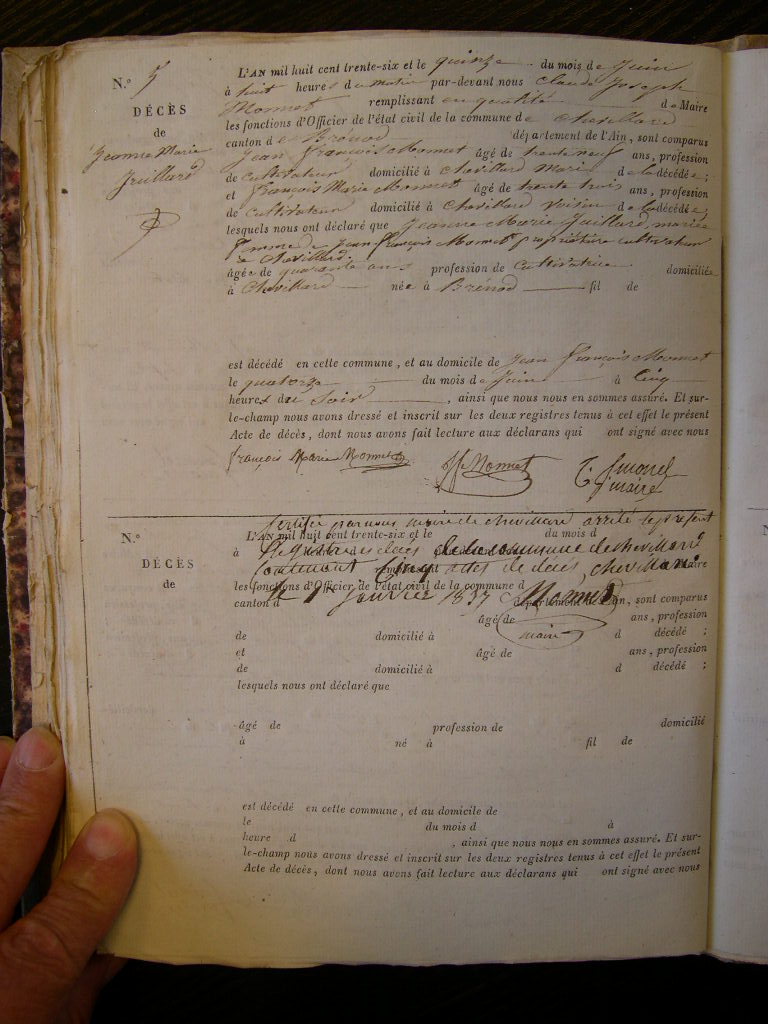 N.º 5
DÉCÈS
de
Jeanne Marie
Juillard
L'AN mil huit cent trente-six et le quinze du mois de Juin
à huit heures du matin par-devant nous Claude Joseph
Monnet remplissant en qualité de Maire
les fonctions d'Officier de l'état civil de la commune de Chevillard
canton de Brénod département de l'Ain, sont comparus
Jean François Monnet âgé de trente neuf ans, profession
de cultivateur domicilié à Chevillard Mari de la décédée ;
et François Marie Monnet âgé de trente trois ans, profession
de cultivateur domicilié à Chevillard Voisin de la décédée ;
lesquels nous ont déclaré que Jeanne Marie Juillard, mariée
femme de Jean François Monnet propriétaire cultivateur
à Chevillard.
âgée de quarante ans profession de Cultivatrice domiciliée
à Chevillard née à Brénod fil de
est décédé en cette commune, et au domicile de Jean François Monnet
le quatorze du mois de Juin à Cinq
heures du Soir, ainsi que nous nous en sommes assuré. Et sur-
le-champ nous avons dressé et inscrit sur les deux registres tenus à cet effet le présent
Acte de décès, dont nous avons fait lecture aux déclarans qui ont signé avec nous
François Marie Monnet Monnet maire
N.º
DÉCÈS
de
certifié par nous maire de chevillard arrêté le présent
L'AN mil huit cent trente-six et le du mois d
à
Registre des décès de la commune de chevillard
contenant Cinq actes de décès, chevillard
Maire
les fonctions d'Officier de l'état civil de la commune d
le 1er Janvier 1837 Monnet
canton d département de l'Ain, sont comparus
âgé de ans, profession
maire
de domicilié à d décédé ;
et âgé de ans, profession
de domicilié à d décédé ;
lesquels nous ont déclaré que
âgé de profession de domicilié
à né à fil de
est décédé en cette commune, et au domicile de
le du mois d à
heure d , ainsi que nous nous en sommes assuré. Et sur-
le-champ nous avons dressé et inscrit sur les deux registres tenus à cet effet le présent
Acte de décès, dont nous avons fait lecture aux déclarans qui ont signé avec nous